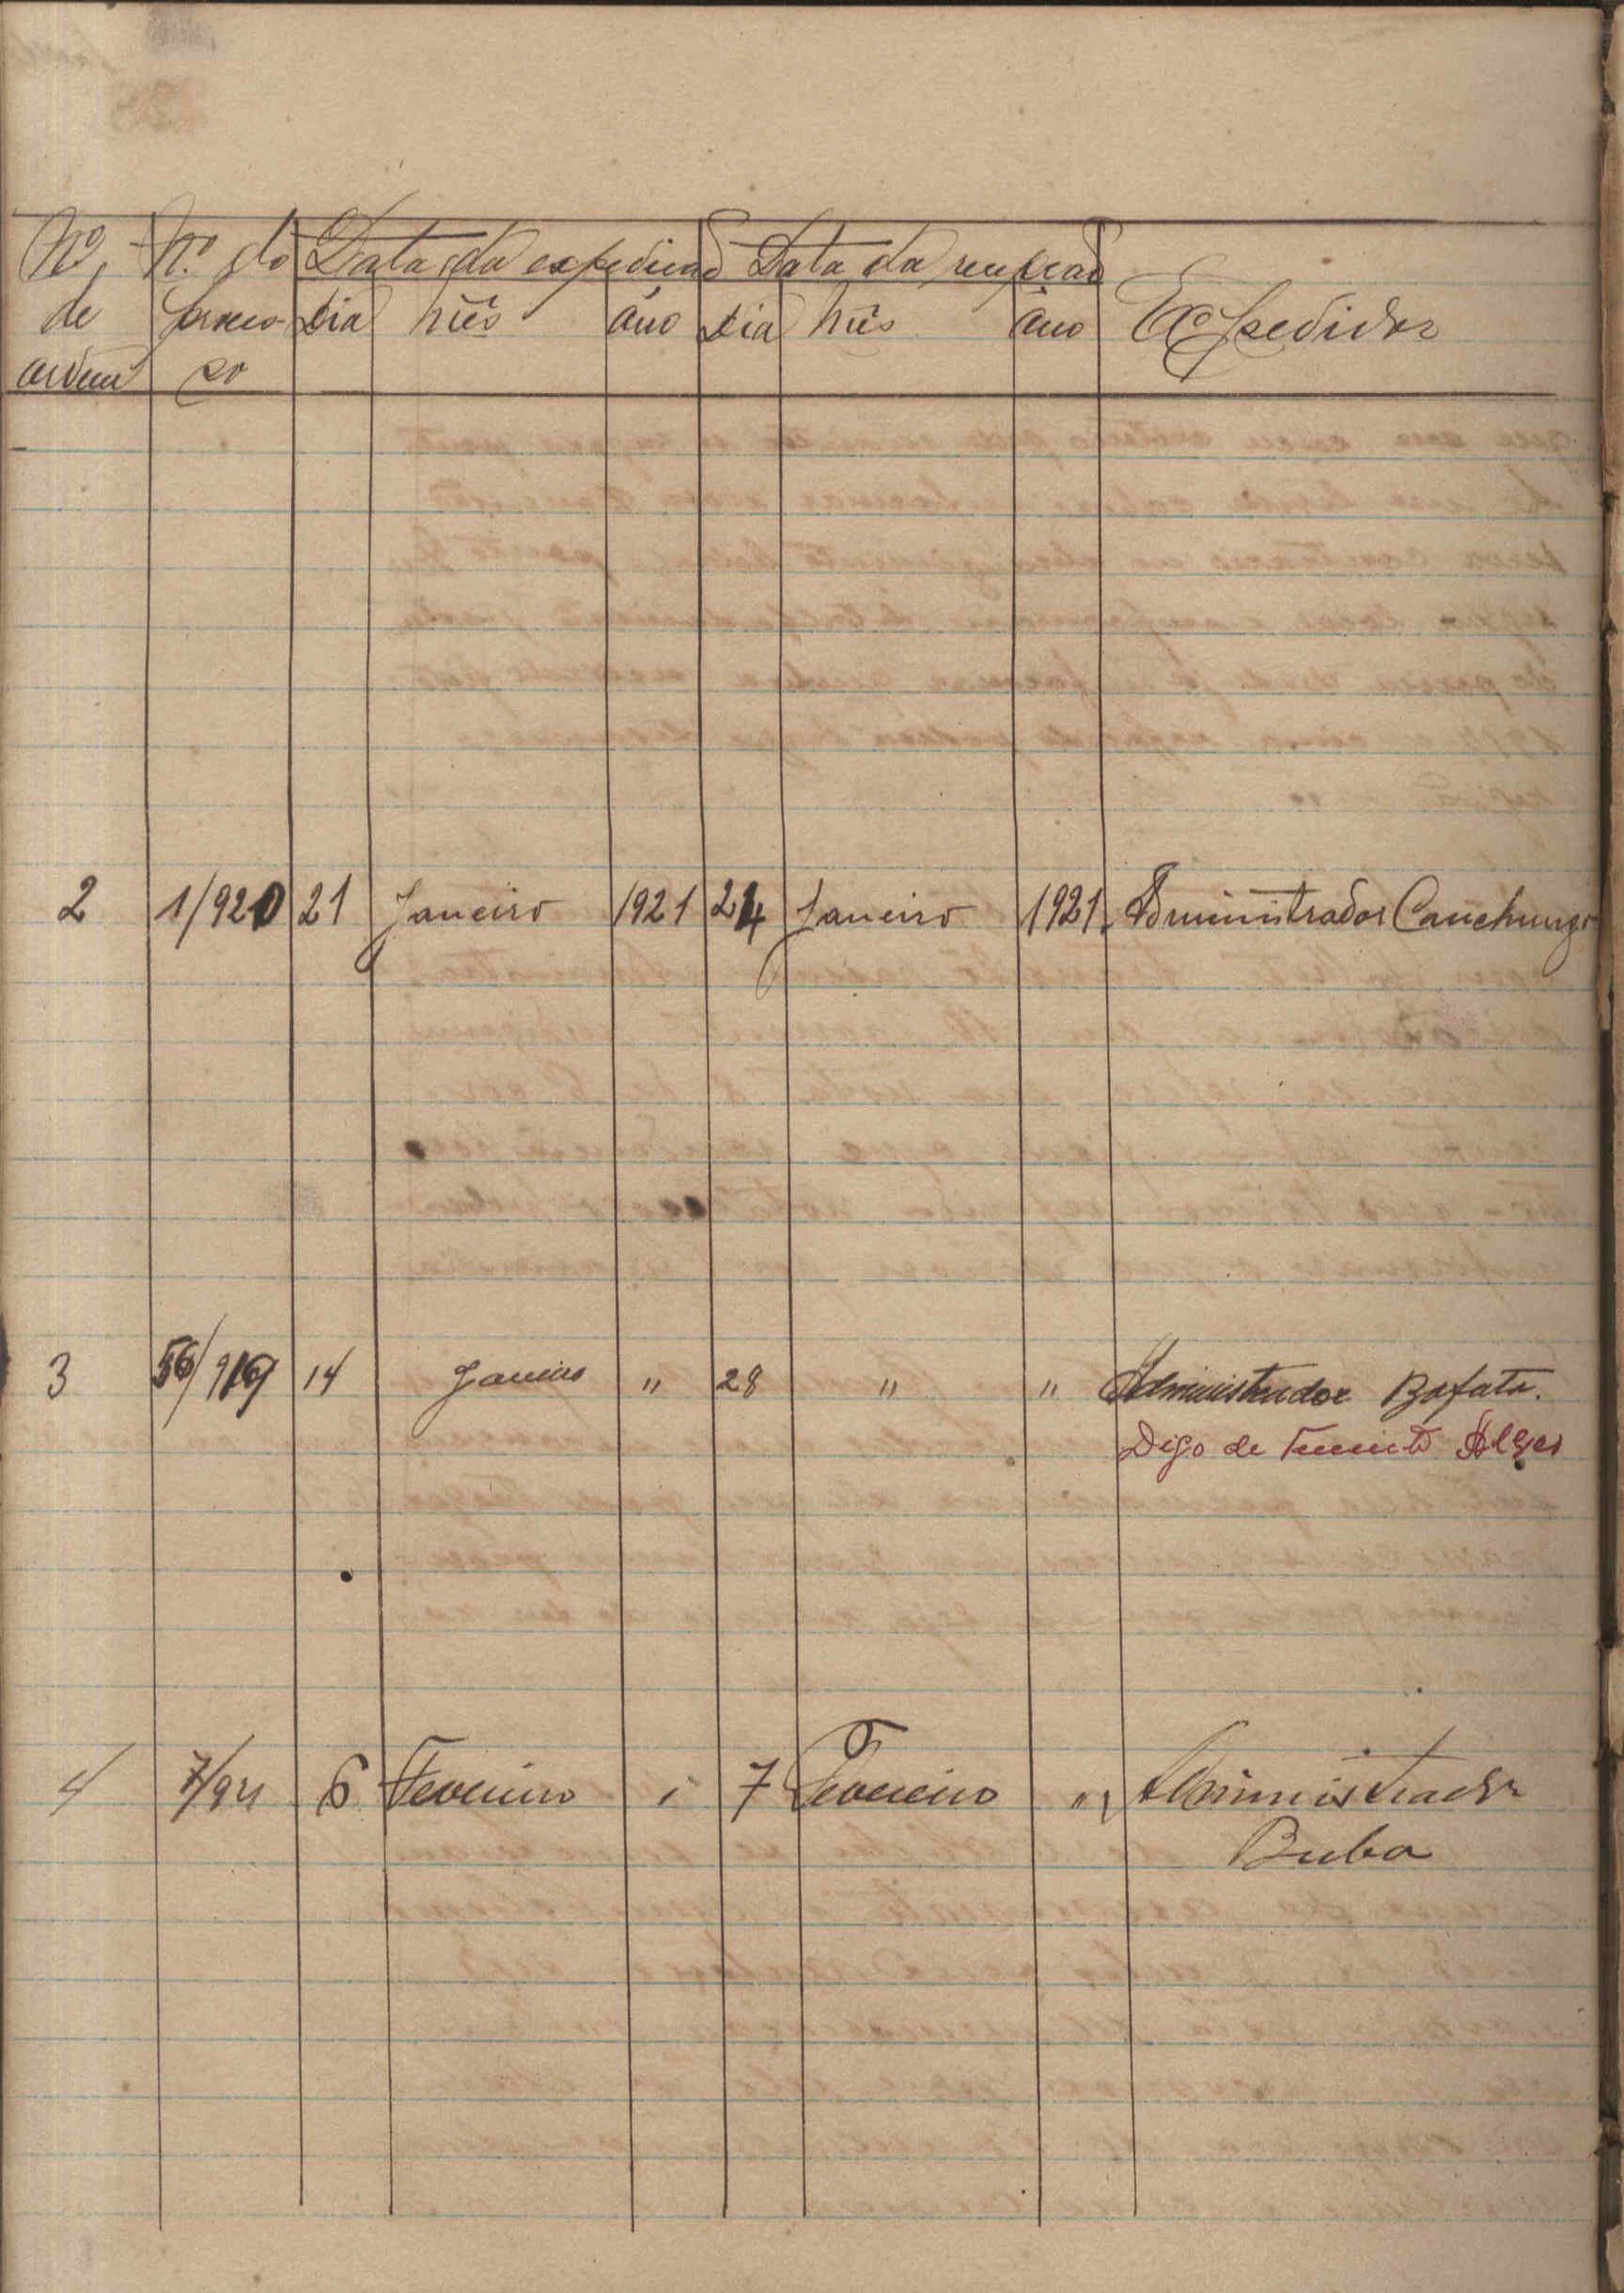 Nº Nº do Data da expedição Data da recepção
de proces- Dia Mês Ano Dia Mês Ano Expedidor
ordem so
2 1/920 21 Janeiro 1921 24 Janeiro 1921. Administrador Canchungo
3 56/919 14 Janeiro " 28 " " Administrador Bafata.
Digo de Tenente
4 7/921 6 Fevereiro " 7 Fevereiro " Administrador
Buba